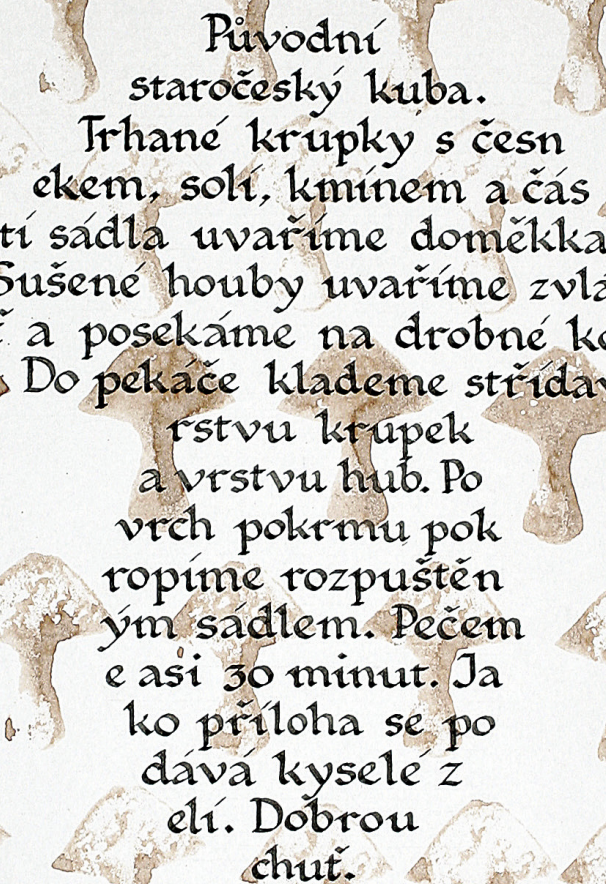 Původní
staročeský kuba.
Trhané krupky s česn
ekem, solí, kmínem a čás
tí sádla uvaříme doměkka
Sušené houby uvaříme zvlá
ť a posekáme na drobné ko
Do pekáče klademe střídav
rstvu krupek
a vrstvu hub. Po
vrch pokrmu pok
ropíme rozpuštěn
ým sádlem. Pečem
e asi 30 minut. Ja
ko příloha se po
dává kyselé z
elí. Dobrou
chuť.